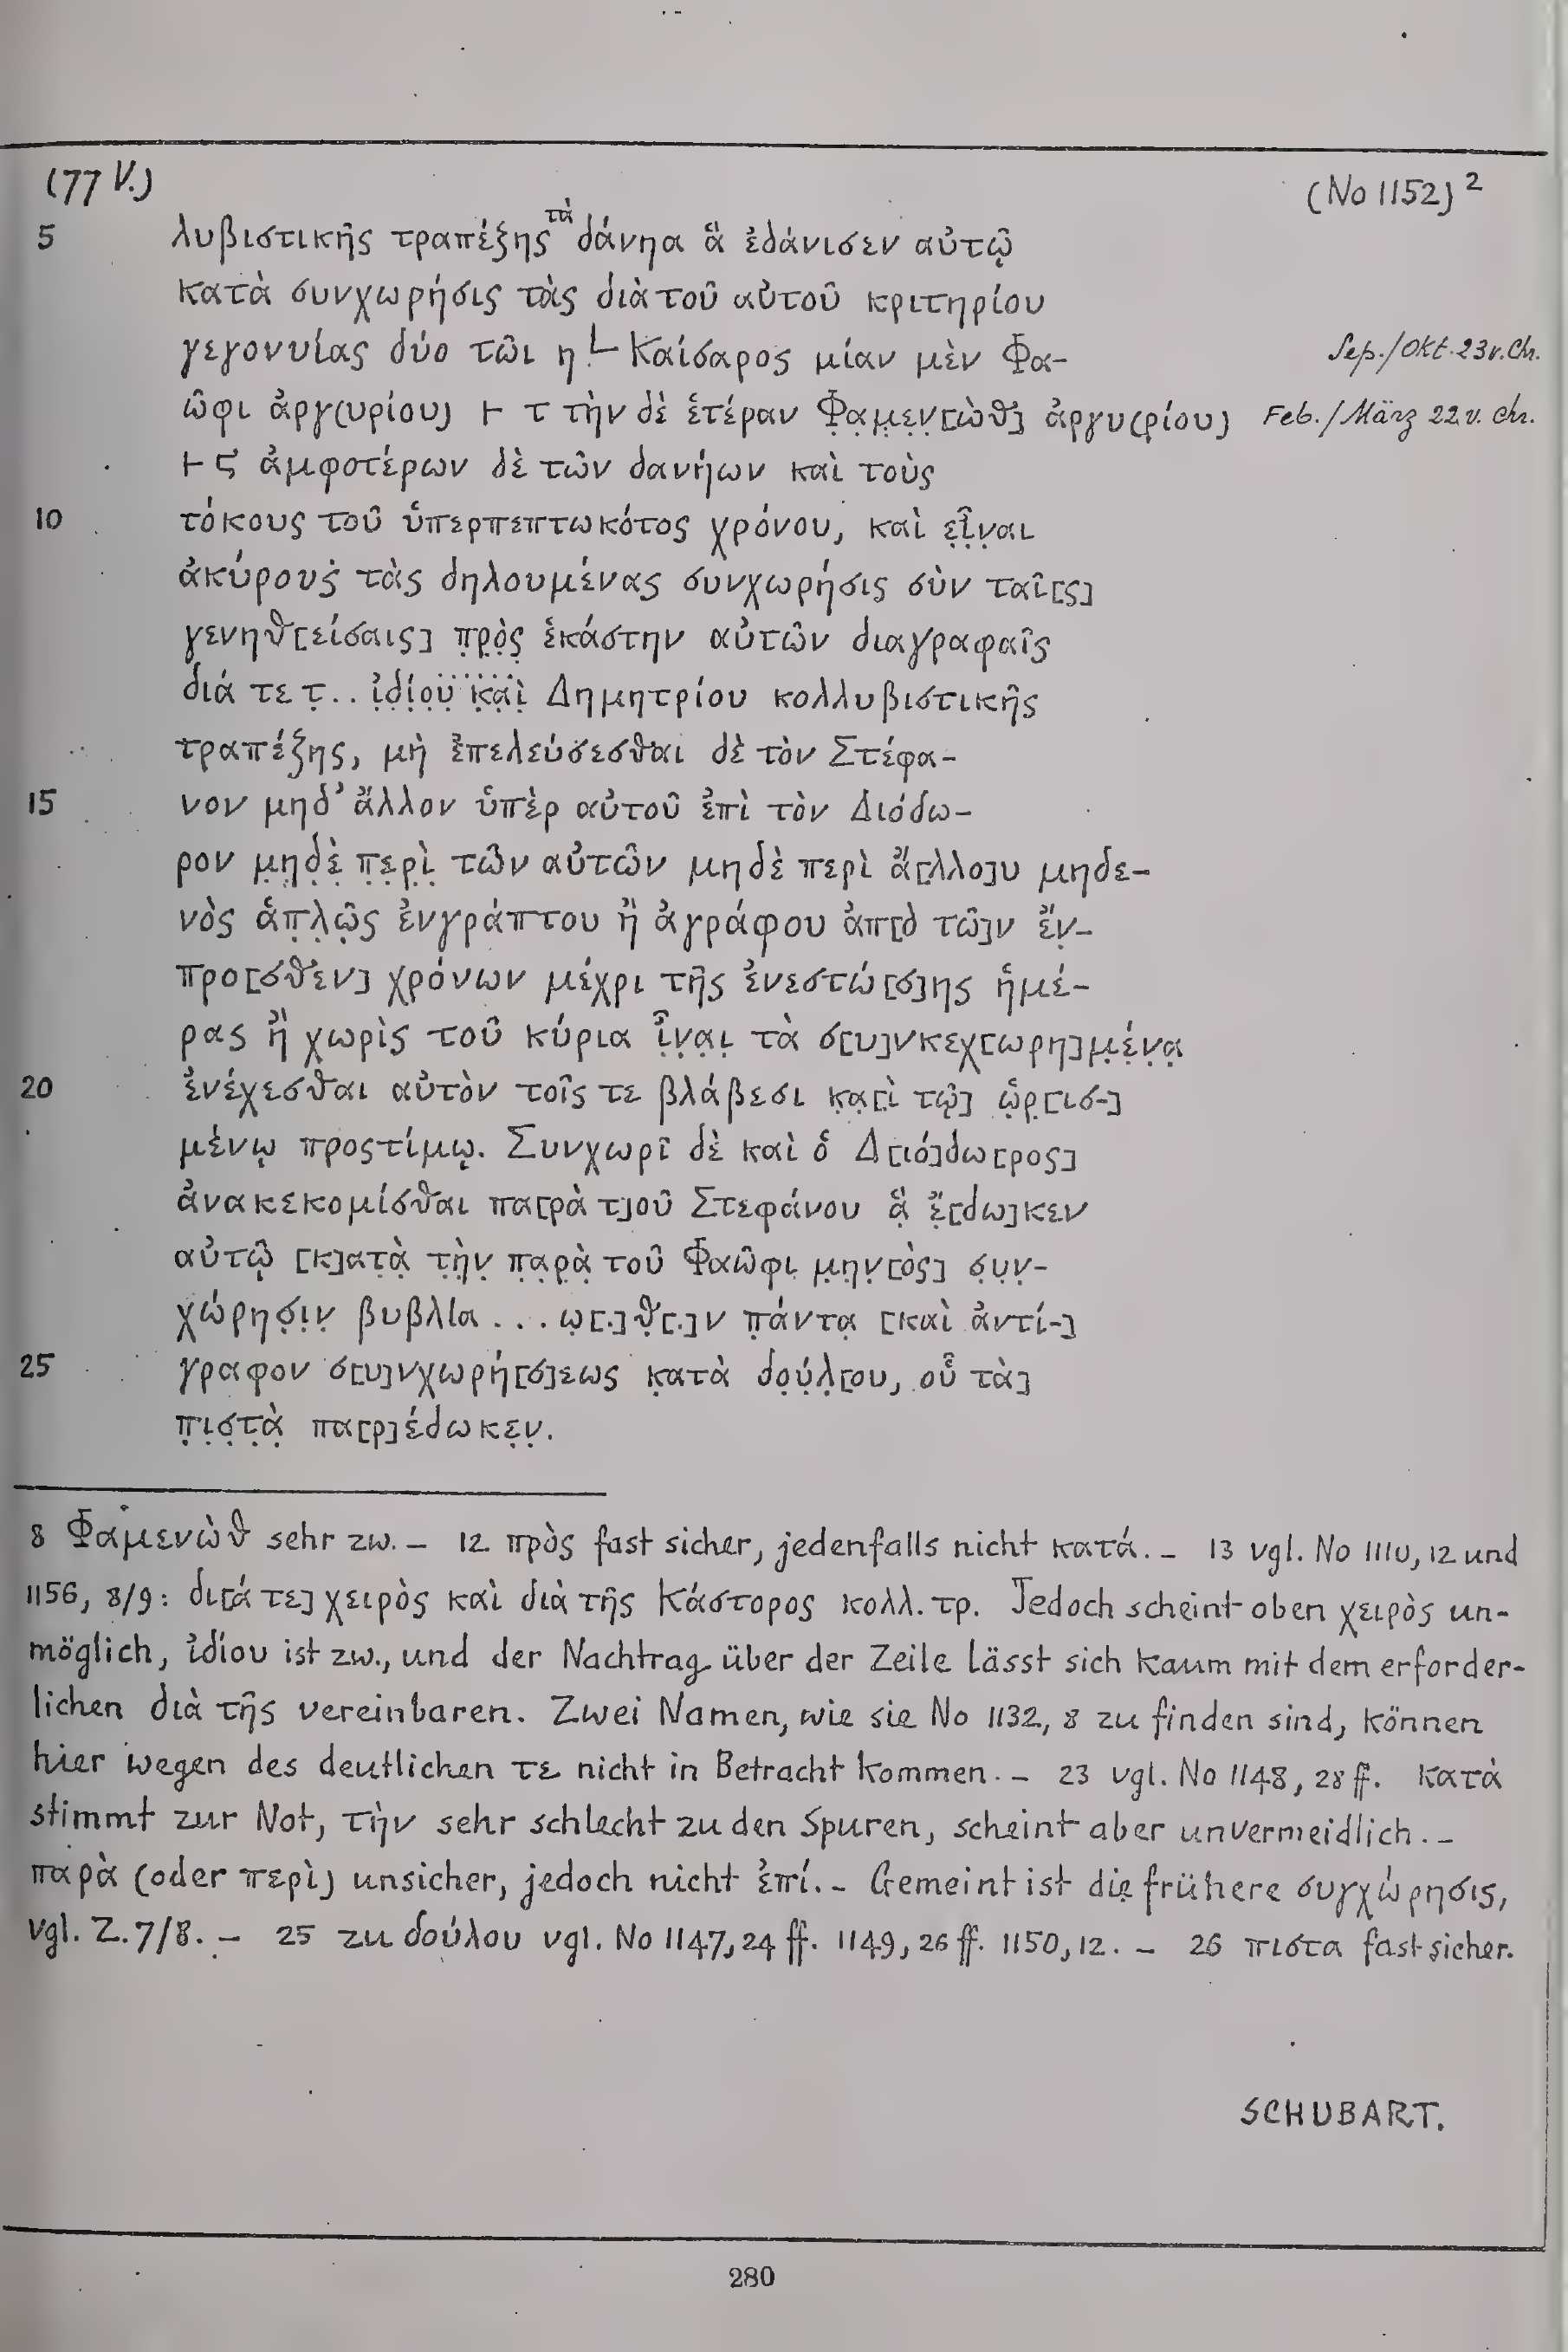 (77 V.) (No 1152)²
5 λυβιστικῆς τραπέζης `τὰ´ δάνηα ἃ ἐδάνισεν αὐτῷ
κατὰ συνχωρήσις τὰς διὰ τοῦ αὐτοῦ κριτηρίου
γεγονυίας δύο τῶι η L Καίσαρος μίαν μὲν Φα- Sep./Okt. 23 v. Chr.
ῶφι ἀργ(υρίου) ⊢ τ τὴν δὲ ἑτέραν Φ̣α̣μ̣ε̣ν̣[ὼθ] ἀργυ(ρίου) Feb./März 22 v. Chr.
⊢ ϛ ἀμφοτέρων δὲ τῶν δανήων καὶ τοὺς
10 τόκους τοῦ ὑπερπεπτωκότος χρόνου, καὶ ε̣ἶ̣ν̣αι
ἀκύρους τὰς δηλουμένας συνχωρήσις σὺν ταῖ[ς]
γενηθ[είσαις] π̣ρ̣ὸ̣ς̣ ἑκάστην αὐτῶν διαγραφαῖς
διά τε τ̣.. ἰ̣δ̣ί̣ο̣υ̣ κ̣α̣ὶ̣ Δημητρίου κολλυβιστικῆς
τραπέζης, μὴ ἐπελεύσεσθαι δὲ τὸν Στέφα-
15 νον μηδ' ἄλλον ὑπὲρ αὐτοῦ ἐπὶ τὸν Διόδω-
ρον μ̣η̣δ̣ὲ̣ π̣ε̣ρ̣ὶ̣ τῶν αὐτῶν μηδὲ περὶ ἄ[λλο]υ μηδε-
νὸς ἁπ̣λ̣ῶ̣ς ἐνγράπτου ἢ ἀγράφου ἀπ[ὸ τῶ]ν ἔν̣-
προ[σθεν] χρόνων μέχρι τῆς ἐνεστώ[σ]ης ἡμέ-
ρας ἢ χωρὶς τοῦ κύρια ἶ̣ν̣α̣ι̣ τὰ σ[υ]νκεχ[ωρη]μ̣έ̣ν̣α̣
20 ἐνέχεσθαι αὐτὸν τοῖς τε βλάβεσι κ̣α̣[ὶ τῷ] ὡ̣ρ̣[ισ-]
μένῳ προστίμῳ. Συνχωρῖ δὲ καὶ ὁ Δ[ιό]δω[ρος]
ἀνακεκομίσθαι πα[ρὰ τ]οῦ Στεφάνου ἃ̣ ἔ̣[δω]κεν
αὐτῷ [κ]ατ̣ὰ̣ τ̣ὴ̣ν̣ π̣α̣ρ̣ὰ̣ τοῦ Φαῶφι̣ μ̣η̣ν̣[ὸς] σ̣υ̣ν̣-
χώρησ̣ι̣ν̣ βυβλία ... ω̣[.]θ̣[.]ν π̣άντα̣ [καὶ ἀντί-]
25 γραφον σ[υ]νχωρή[σ]εως κ̣ατὰ δο̣ύ̣λ̣[ου, οὗ τὰ]
π̣ι̣σ̣τ̣ὰ̣ πα[ρ]έδωκε̣ν̣.
8 Φαμενὼθ sehr zw. – 12 πρὸς fast sicher, jedenfalls nicht κατά. – 13 vgl. No 1110, 12 und
1156, 8/9: δι[ά τε] χειρὸς καὶ διὰ τῆς Κάστορος κολλ. τρ. Jedoch scheint oben χειρὸς un-
möglich, ἰδίου ist zw., und der Nachtrag über der Zeile lässt sich kaum mit dem erforder-
lichen διὰ τῆς vereinbaren. Zwei Namen, wie sie No 1132, 8 zu finden sind, können
hier wegen des deutlichen τε nicht in Betracht kommen. – 23 vgl. No 1148, 28 ff. κατὰ
stimmt zur Not, τὴν sehr schlecht zu den Spuren, scheint aber unvermeidlich. –
παρὰ (oder περὶ) unsicher, jedoch nicht ἐπί. – Gemeint ist die frühere συγχώρησις,
vgl. Z. 7/8. – 25 zu δούλου vgl. No 1147, 24 ff. 1149, 26 ff. 1150, 12. – 26 πιστα fast sicher.
SCHUBART.
280